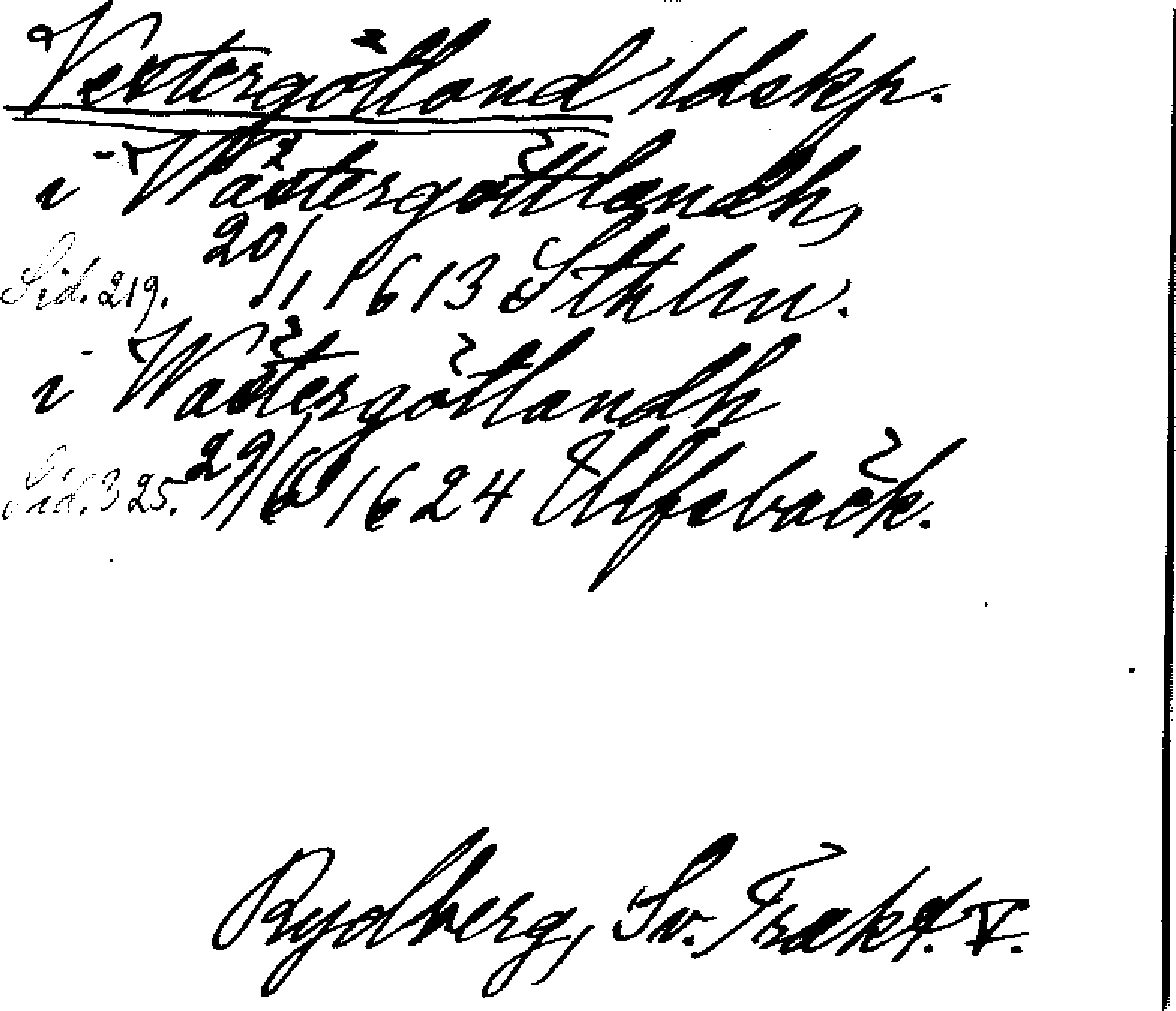 Vestergötland ldskp.
i Wästergöttlandh,
Sid. 219. 20/1 1613 Sthlm.
i Wästergötlandh
Sid. 325. 29/6 1624 Ulfsbäck.
Rydberg, Sv. Trakt. V.